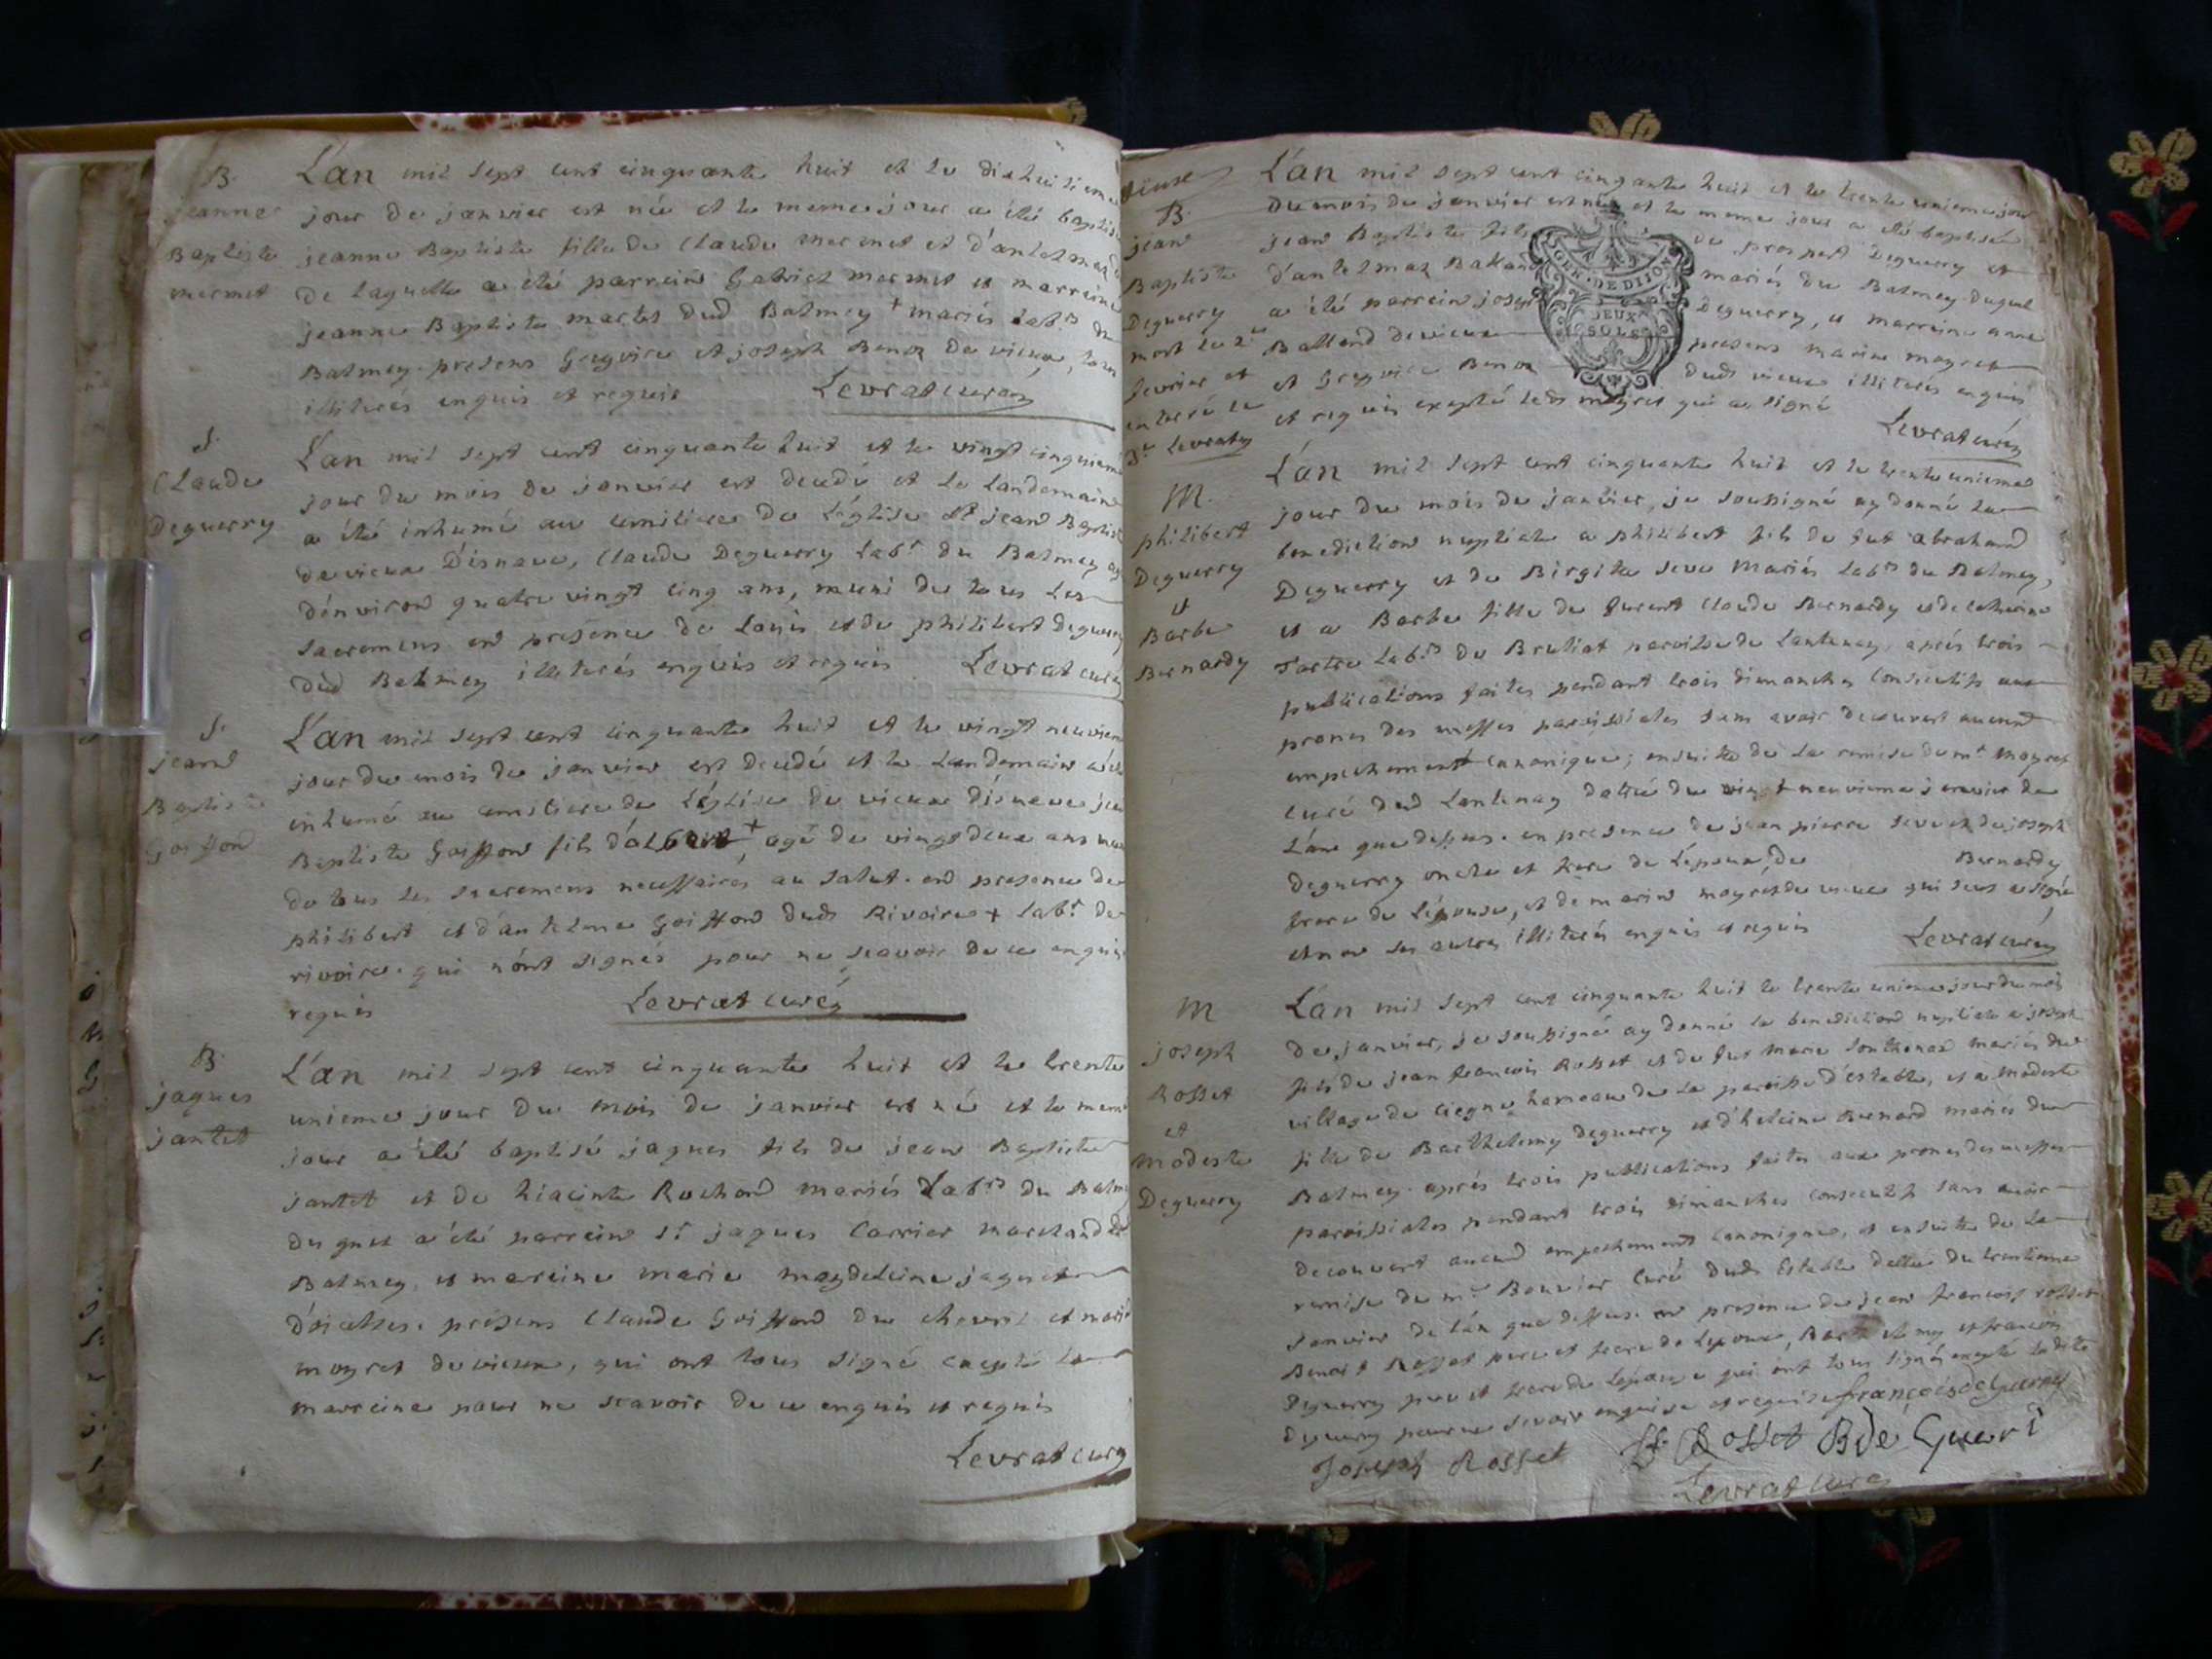 B.
jeanne
Baptiste
mermet
L'an mil sept cent cinquante huit et le dixhuitieme
jour de janvier est née et le meme jour a été baptisée
jeanne Baptiste fille de Claude mermet et d'antelmaz
de laquelle a été parrein Gabriel mermet et marreine
jeanne Baptiste martel dud Balmey + mariés Lab.rs du
Balmey. presens Gregoire et joseph Benoz de vieux, tous
illiterés enquis et requis Levrat curé
S.
Claude
Deguerry
L'an mil sept cent cinquante huit et le vingt cinquieme
jour du mois de janvier est decedé et le landemain
a été inhumé au cemitiere de L'église St jean Baptiste
de vieux D'isnave, Claude Deguerry Lab.r du Balmey agé
d'environ quatre vingt cinq ans, muni de tous les
sacremens en presence de Loüis et de philibert deguerry
dud Balmey illiterés enquis et requis Levrat curé
S.
jean
Baptiste
Goiffon
L'an mil sept cent cinquante huit et le vingt neuvieme
jour du mois de janvier est decedé et le Landemain a été
inhumé au cemitiere de L'église de vieux d'isnave jean
Baptiste Goiffon fils d'albert + agé de vingt deux ans muni
de tous les sacremens necessaires au salut. en presence de
philibert et d'anthelme Goiffon dud Rivoire + Lab.r de
rivoire. qui n'ont signés pour ne scavoir de ce enquis
requis Levrat curé
B
jaques
jantet
L'an mil sept cent cinquante huit et le trente
unieme jour du mois de janvier est né et le meme
jour a été baptisé jaques fils de jean Baptiste
jantet et de hiacinte Rochard mariés Lab.rs du Balmey
duquel a été parrein S.r jaques Carrier marchand de
Balmey, et marreine marie magdeleine jaquet
presens Claude Goiffon du chevril et marin
moyret de vieux, qui ont tous signé excepté la
marreine pour ne scavoir de ce enquis et requis
Levrat curé
B.
jean
Baptiste
Deguerry
mort le 2e
fevrier et
enterré le
3e Levrat
L'an mil sept cent cinquante huit et le trente unieme jour
du mois de janvier est né et le meme jour a été baptisé
jean Baptiste fils de prospert Deguerry et
d'antelmaz Balland mariés du Balmey duquel
a été parrein joseph Deguerry, et marreine anne
Balland de vieux presens marin moyret
et Gregoire Benoz dud vieux illiterés enquis
et requis excepté led moyret qui a signé
Levrat curé
GEN. DE DIJON
DEUX
SOLS
M.
philibert
Deguerry
et
Barbe
Bernardy
L'an mil sept cent cinquante huit et le trente unieme
jour du mois de janvier, je soussigné ay donné la
benediction nuptiale a philibert fils de fut abraham
Deguerry et de Birgite seve Mariés Lab.rs du Balmey,
et a Barbe fille de Claude Bernardy et de catherine
Tartre Lab.rs du Bruliat paroisse de Lantenay, aprés trois
publications faites pendant trois dimanches consecutifs aux
prones des messes paroissiales sans avoir decouvert aucun
empechement canonique; ensuitte de la remise de m.r moyret
curé dud Lantenay dattée du vingt neuvieme janvier de
L'an que dessus. en presence de jean pierre seve et de joseph
deguerry oncle et frere de L'epoux; de Bernardy
frere de L'épouse, et de marin moyret de vieux qui seul a signé
et non les autres illiterés enquis et requis Levrat curé
M
joseph
Rosset
et
modeste
Deguerry
L'an mil sept cent cinquante huit le trente unieme jour du mois
de janvier, je soussigné ay donné la benediction nuptiale a joseph
fils de jean francois Rosset et de fut marie Sonthonax mariés du
village de ciegne hameau de La paroisse d'estable, et a modeste
fille de Barthelemy Deguerry et d'heleine Bernard mariés du
Balmey. aprés trois publications faites aux prones des messes
paroissiales pendant trois dimanches consecutifs sans avoir
decouvert aucun empechement canonique, et ensuitte de La
remise de m.r Bouvier Curé dud Estable dattée du trentieme
janvier de l'an que dessus. en presence de jean francois rosset
Benoit Rosset pere et frere de L'epoux, Barthelemy et francois
Deguerry pere et frere de L'epouse qui ont tous signés excepté ladite
deguerry pour ne scavoir enquise et requise françois deguerry
Joseph Rosset Rosset B De Gueri
Levrat curé